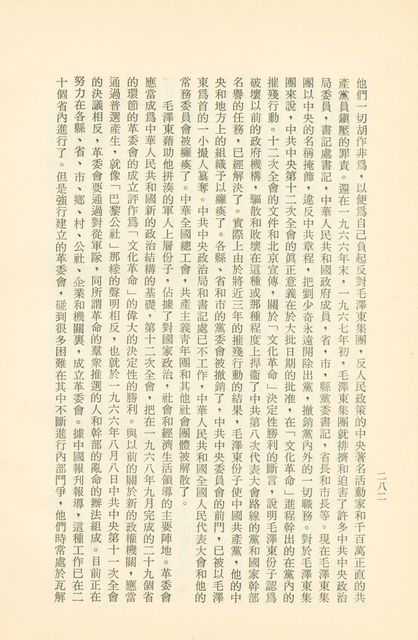 二八二
他們一切胡作非爲，以便爲自己負起反對毛澤東集團，反人民政策的中央著名活動家和千百萬正直的共
產黨員鎭壓的罪責。還在一九六六年末，一九六七年初，毛澤東集團就排擠和迫害了許多中共中央政治
局委員，書記處書記，中華人民共和國政府成員，省，市，縣黨委書記，省長和市長等。現在毛澤東集
團以中央的名稱掩飾，違反中共章程，把劉少奇永遠開除出黨，撤銷黨內外的一切職務。對於毛澤東集
團來說，中共中央第十二次全會的眞正意義在於大批日期的批准，在「文化革命」進程幹出的在黨內的
摧殘行動。十二次全會的文件和北京宣傳，關於「文化革命」決定性勝利的斷言，說明毛澤東份子認爲
破壞以前的政府機構，驅散和敗壞在這種或那種程度上捍衞了中共第八次代表大會路線的黨和國家幹部
名譽的任務，已經解決了。實際上由於將近三年的摧殘行動的結果，毛澤東份子使中國共產黨，他的中
央和地方上的組織予以癱瘓了。各縣、省和市的黨委會被撤銷了，中共中央委員會的前門，已被以毛澤
東爲首的一小撮人篡奪。中共中央政治局和書記處已不工作，中華人民共和國全國人民代表大會和他的
常務委員會被癱瘓了。中華全國總工會，共產主義青年團和其他社會團體被解散了。
毛澤東藉助他拼湊的軍人上層份子，佔據了對國家政治，社會和經濟生活領導的主要陣地。革委會
應當成爲中華人民共和國新的政治結構的基礎，第十二次全會，把在一九六八年九月完成的二十九個省
的環節的革委會的成立評作爲「文化革命」的偉大的決定性的勝利。與以前的關於新的政權機關，應當
通過普選產生，就像「巴黎公社」那樣的聲明相反，也就於一九六六年八月八日中共中央第十一次全會
的決議相反，革委會要通過對從軍隊，同所謂革命的羣衆推選的人和幹部的亂命的辦法組成。目前正在
努力在各縣、省、市、鄉、村、公社、企業和機關裏，成立革委會。據中國報刊報導，這種工作已在二
十個省內進行了。但是強行建立的革委會，碰到很多困難在其中不斷進行內部鬥爭，他們時常處於瓦解